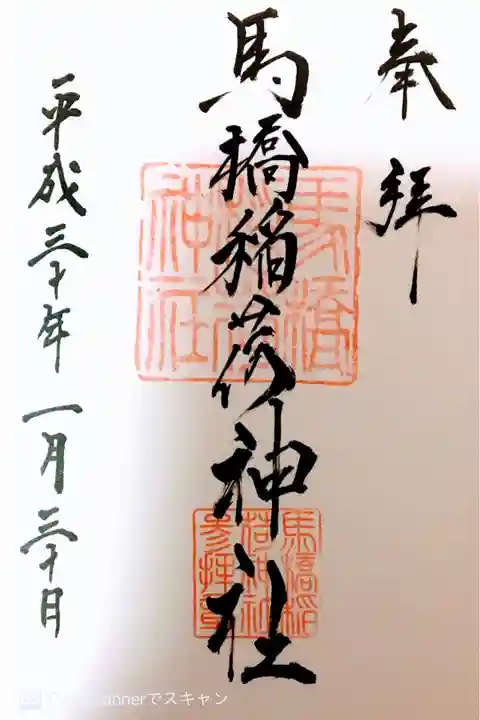 奉拝
馬橋稲荷神社
平成三十年一月三十日
馬橋
稲荷
神社
馬橋稲
荷神社
参拝章
CamScannerでスキャン